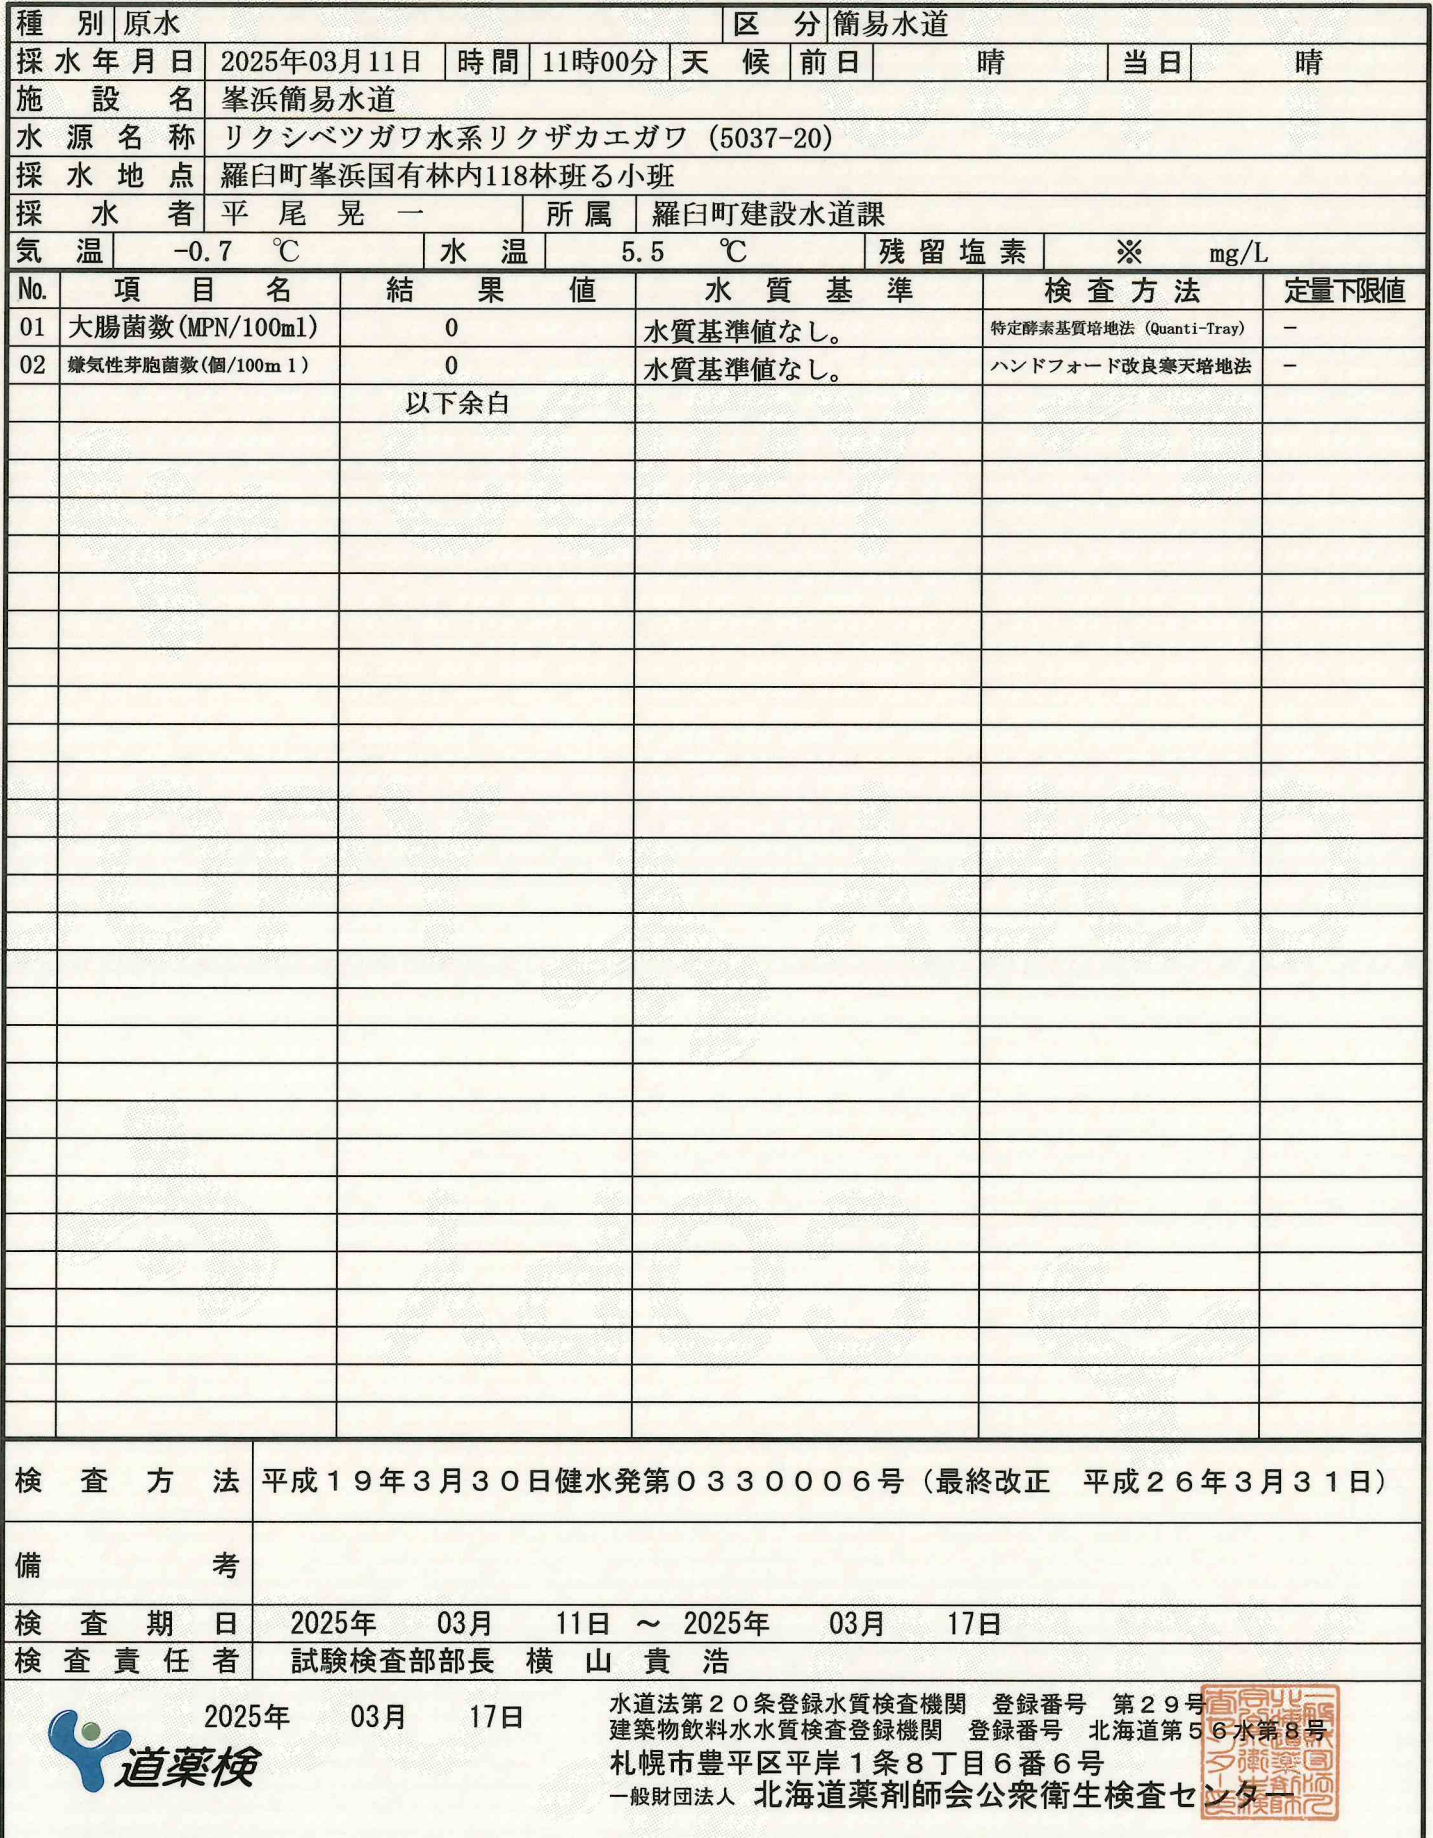 種別 原水 区分 簡易水道
採水年月日 2025年03月11日 時間 11時00分 天候 前日 晴 当日 晴
施設名 峯浜簡易水道
水源名称 リクシベツガワ水系リクザカエガワ (5037-20)
採水地点 羅臼町峯浜国有林内118林班る小班
採水者 平尾晃一 所属 羅臼町建設水道課
気温 -0.7 ℃ 水温 5.5 ℃ 残留塩素 ※ mg/L
No. 項目名 結果値 水質基準 検査方法 定量下限値
01 大腸菌数(MPN/100ml) 0 水質基準値なし。 特定酵素基質培地法 (Quanti-Tray) −
02 嫌気性芽胞菌数(個/100ml) 0 水質基準値なし。 ハンドフォード改良寒天培地法 −
以下余白
検査方法 平成19年3月30日健水発第0330006号(最終改正 平成26年3月31日)
備考
検査期日 2025年 03月 11日 ～ 2025年 03月 17日
検査責任者 試験検査部部長 横山貴浩
2025年 03月 17日
道薬検
水道法第20条登録水質検査機関 登録番号 第29号
建築物飲料水水質検査登録機関 登録番号 北海道第56水第8号
札幌市豊平区平岸1条8丁目6番6号
一般財団法人 北海道薬剤師会公衆衛生検査センター